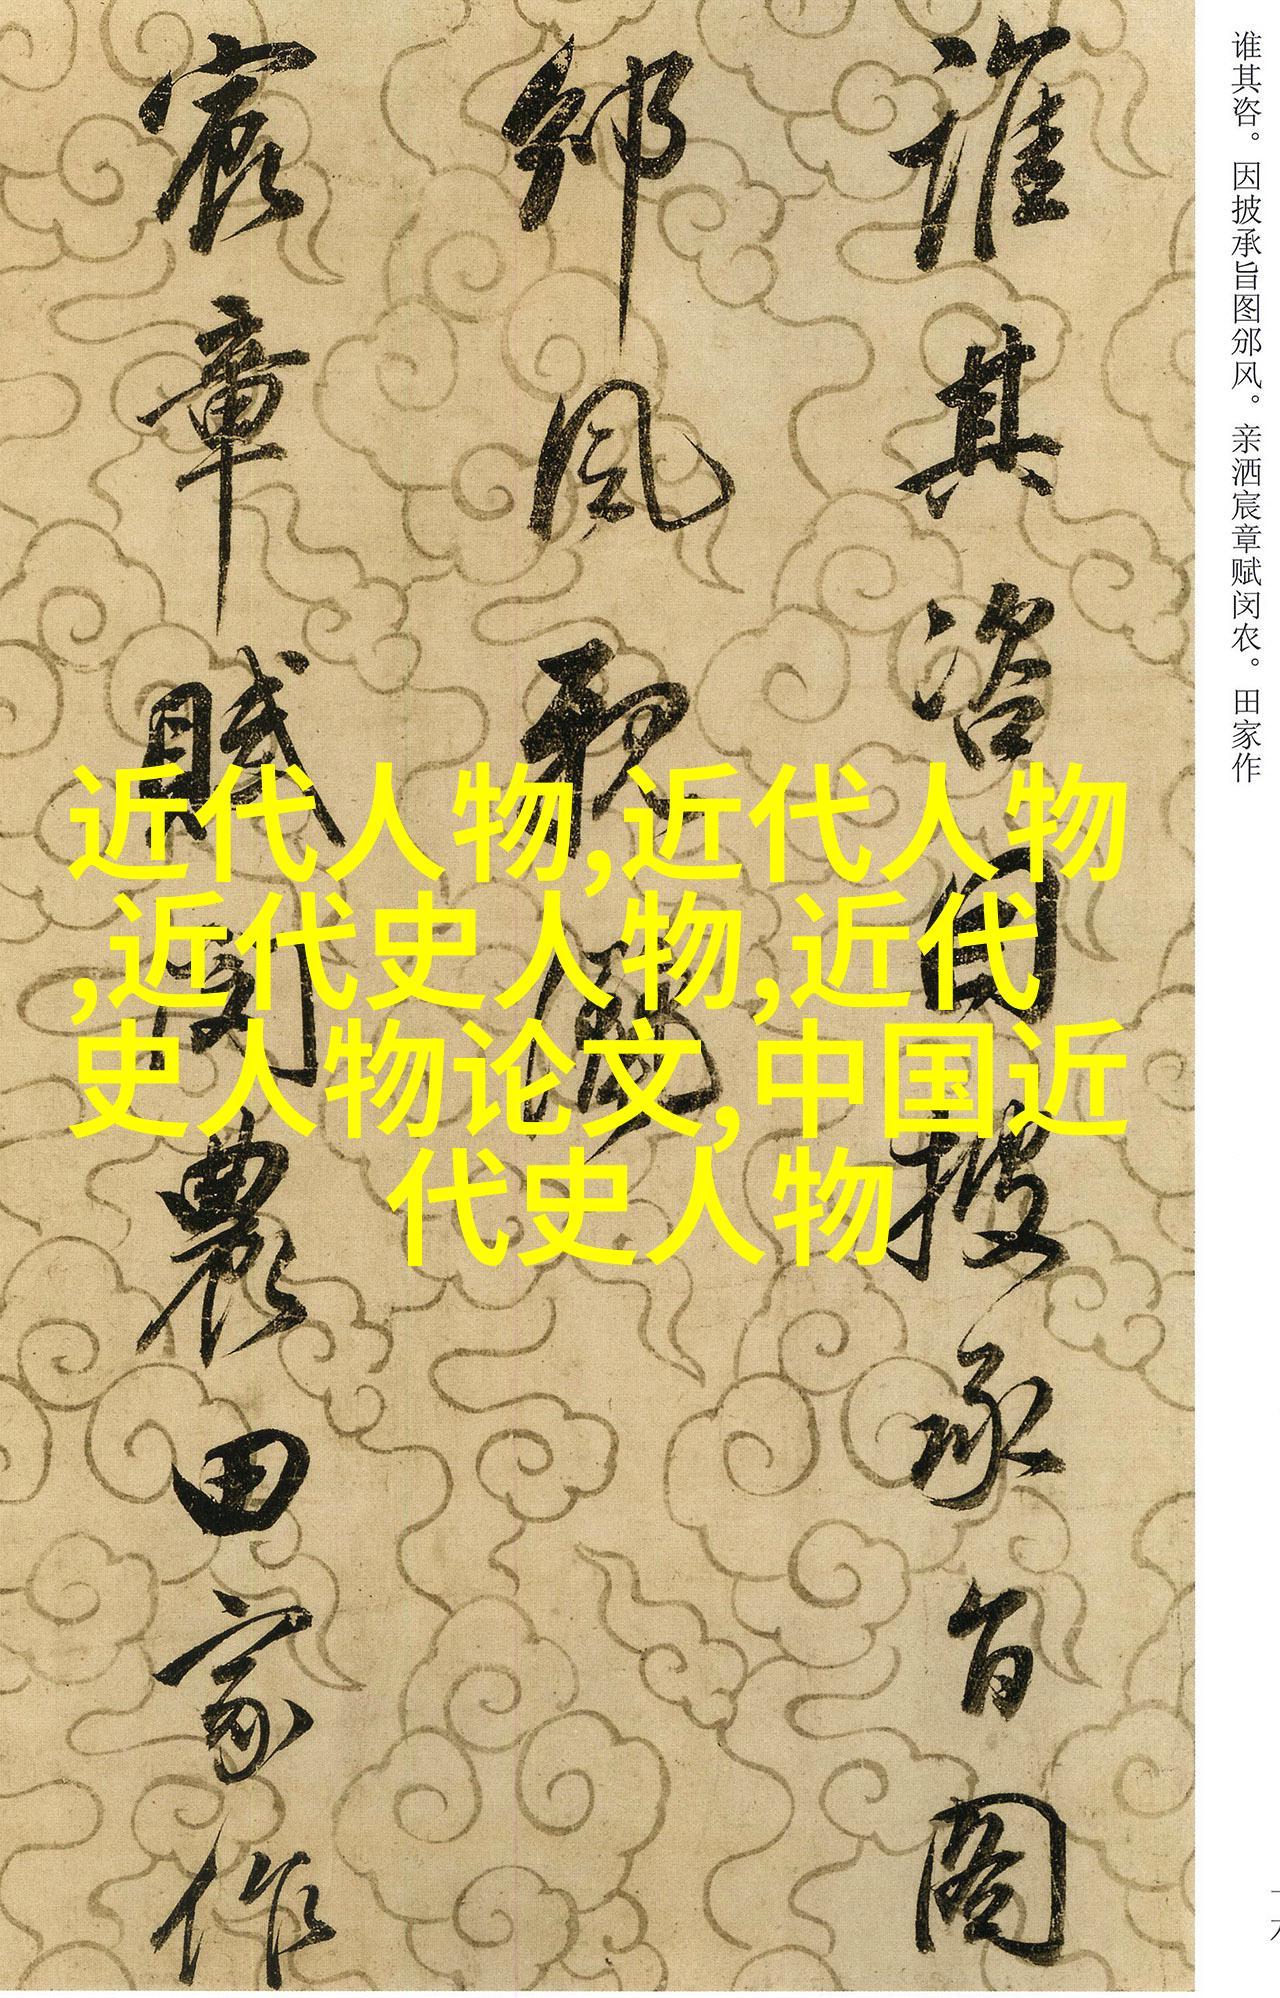 谁其咨。因披承旨图邠风。亲洒宸章赋闵农。田家作
誰其咨因披承旨圖
邠風親灑
宸章賦閔農田家作
近代人物,近代人物
,近代史人物,近代
史人物论文,中国近
代史人物